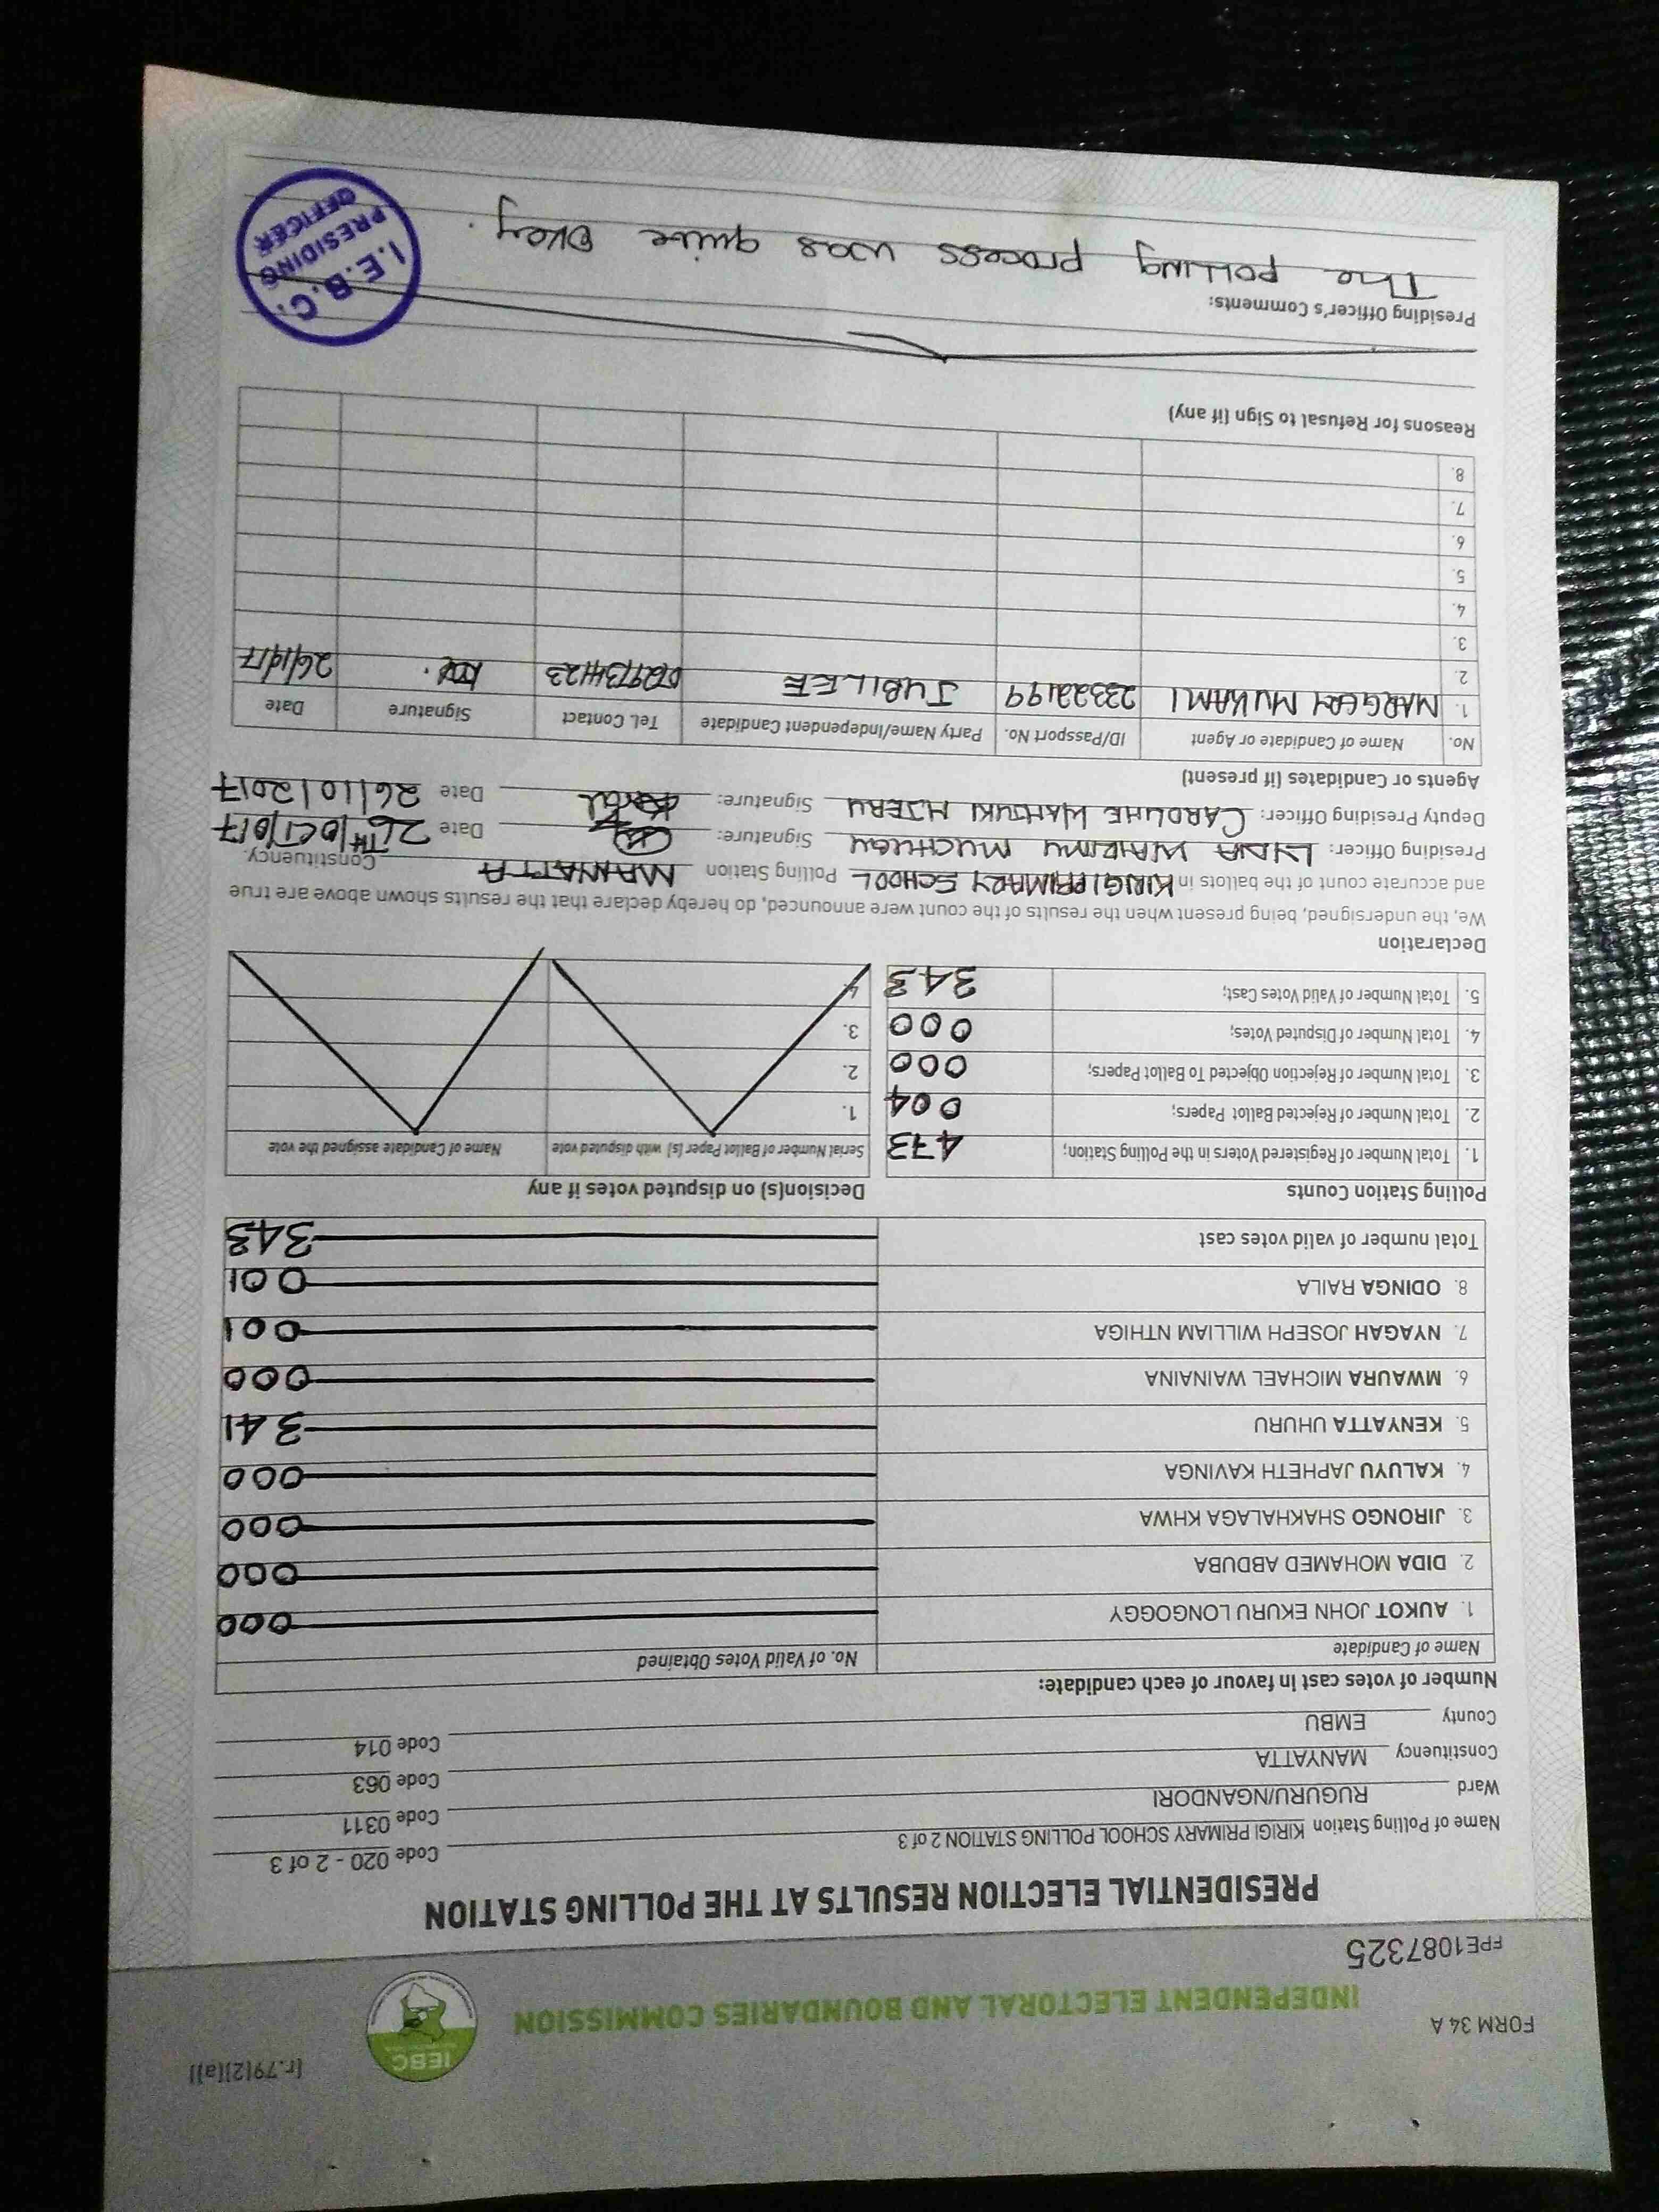 FORM 34 A
[r.79(2)(a)]
IEBC
INDEPENDENT ELECTORAL AND BOUNDARIES COMMISSION
FPE1087325
PRESIDENTIAL ELECTION RESULTS AT THE POLLING STATION
Name of Polling Station KIRIGI PRIMARY SCHOOL POLLING STATION 2 of 3 Code 020 - 2 of 3
Ward RUGURU/NGANDORI Code 0311
Constituency MANYATTA Code 063
County EMBU Code 014
Number of votes cast in favour of each candidate:
Name of Candidate No. of Valid Votes Obtained
1. AUKOT JOHN EKURU LONGOGGY 000
2. DIDA MOHAMED ABDUBA 000
3. JIRONGO SHAKHALAGA KHWA 000
4. KALUYU JAPHETH KAVINGA 000
5. KENYATTA UHURU 341
6. MWAURA MICHAEL WAINAINA 000
7. NYAGAH JOSEPH WILLIAM NTHIGA 001
8. ODINGA RAILA 001
Total number of valid votes cast 343
Polling Station Counts
1. Total Number of Registered Voters in the Polling Station; 473
2. Total Number of Rejected Ballot Papers; 004
3. Total Number of Rejection Objected To Ballot Papers; 000
4. Total Number of Disputed Votes; 000
5. Total Number of Valid Votes Cast; 343
Decision(s) on disputed votes if any
Serial Number of Ballot Paper (s) with disputed vote Name of Candidate assigned the vote
1.
2.
3.
4.
Declaration
We, the undersigned, being present when the results of the count were announced, do hereby declare that the results shown above are true
and accurate count of the ballots in KIRIGI PRIMARY SCHOOL Polling Station MANYATTA Constituency.
Presiding Officer: LYDIA WARIMU MUCHUGU Signature: Date 26TH/OCT/017
Deputy Presiding Officer: CAROLINE WANJUKI NJERU Signature: Date 26/10/2017
Agents or Candidates (if present)
No. Name of Candidate or Agent ID/Passport No. Party Name/Independent Candidate Tel. Contact Signature Date
1. MARGERY MUKAMI 23322199 JUBILEE 26/10/17
2.
3.
4.
5.
6.
7.
8.
Reasons for Refusal to Sign (if any)
Presiding Officer's Comments:
The polling process was quite okay.
I.E.B.C.
PRESIDING
OFFICER